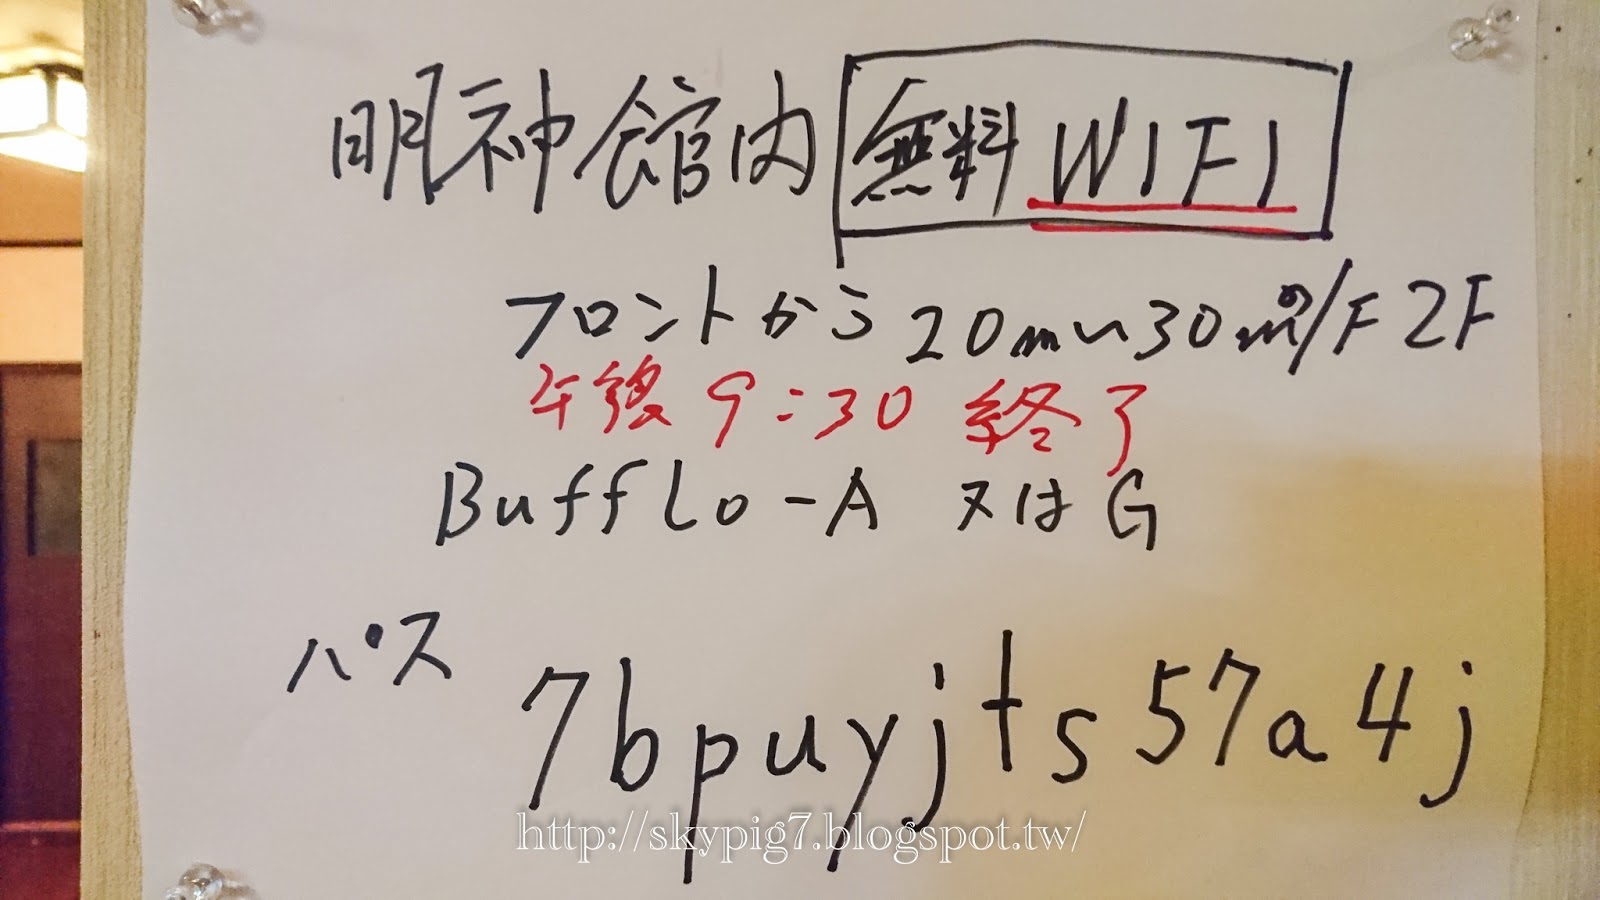 明神館内 無料 WIFI
フロントから 20m〜30mの/F 2F
午後 9:30 終了
Bufflo-A 又は G
パス 7bpuyjts57a4j
http://skypig7.blogspot.tw/